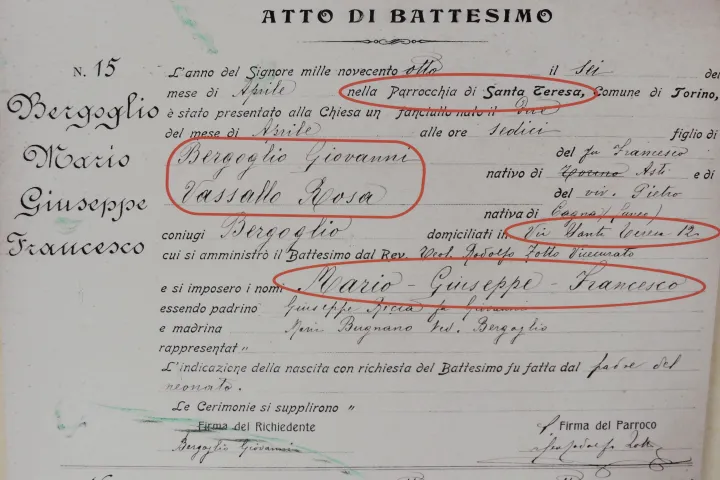 ATTO DI BATTESIMO
N. 15
Bergoglio
Mario
Giuseppe
Francesco
L'anno del Signore mille novecento otto il sei del
mese di Aprile nella Parrocchia di Santa Teresa, Comune di Torino,
è stato presentato alla Chiesa un fanciullo nato il due
del mese di Aprile alle ore sedici figlio di
Bergoglio Giovanni del fu Francesco
nativo di Torino Asti e di
Vassallo Rosa del viv. Pietro
nativa di
coniugi Bergoglio domiciliati in Via Santa Teresa 12
cui si amministrò il Battesimo dal Rev. Teol. Rodolfo Zotto Vicecurato
e si imposero i nomi Mario - Giuseppe - Francesco
essendo padrino Giuseppe fu Giovanni
e madrina Maria Bugnano Ved. Bergoglio
rappresentat "
L'indicazione della nascita con richiesta del Battesimo fu fatta dal padre del
neonato.
Le Cerimonie si supplirono "
Firma del Richiedente Firma del Parroco
Bergoglio Giovanni